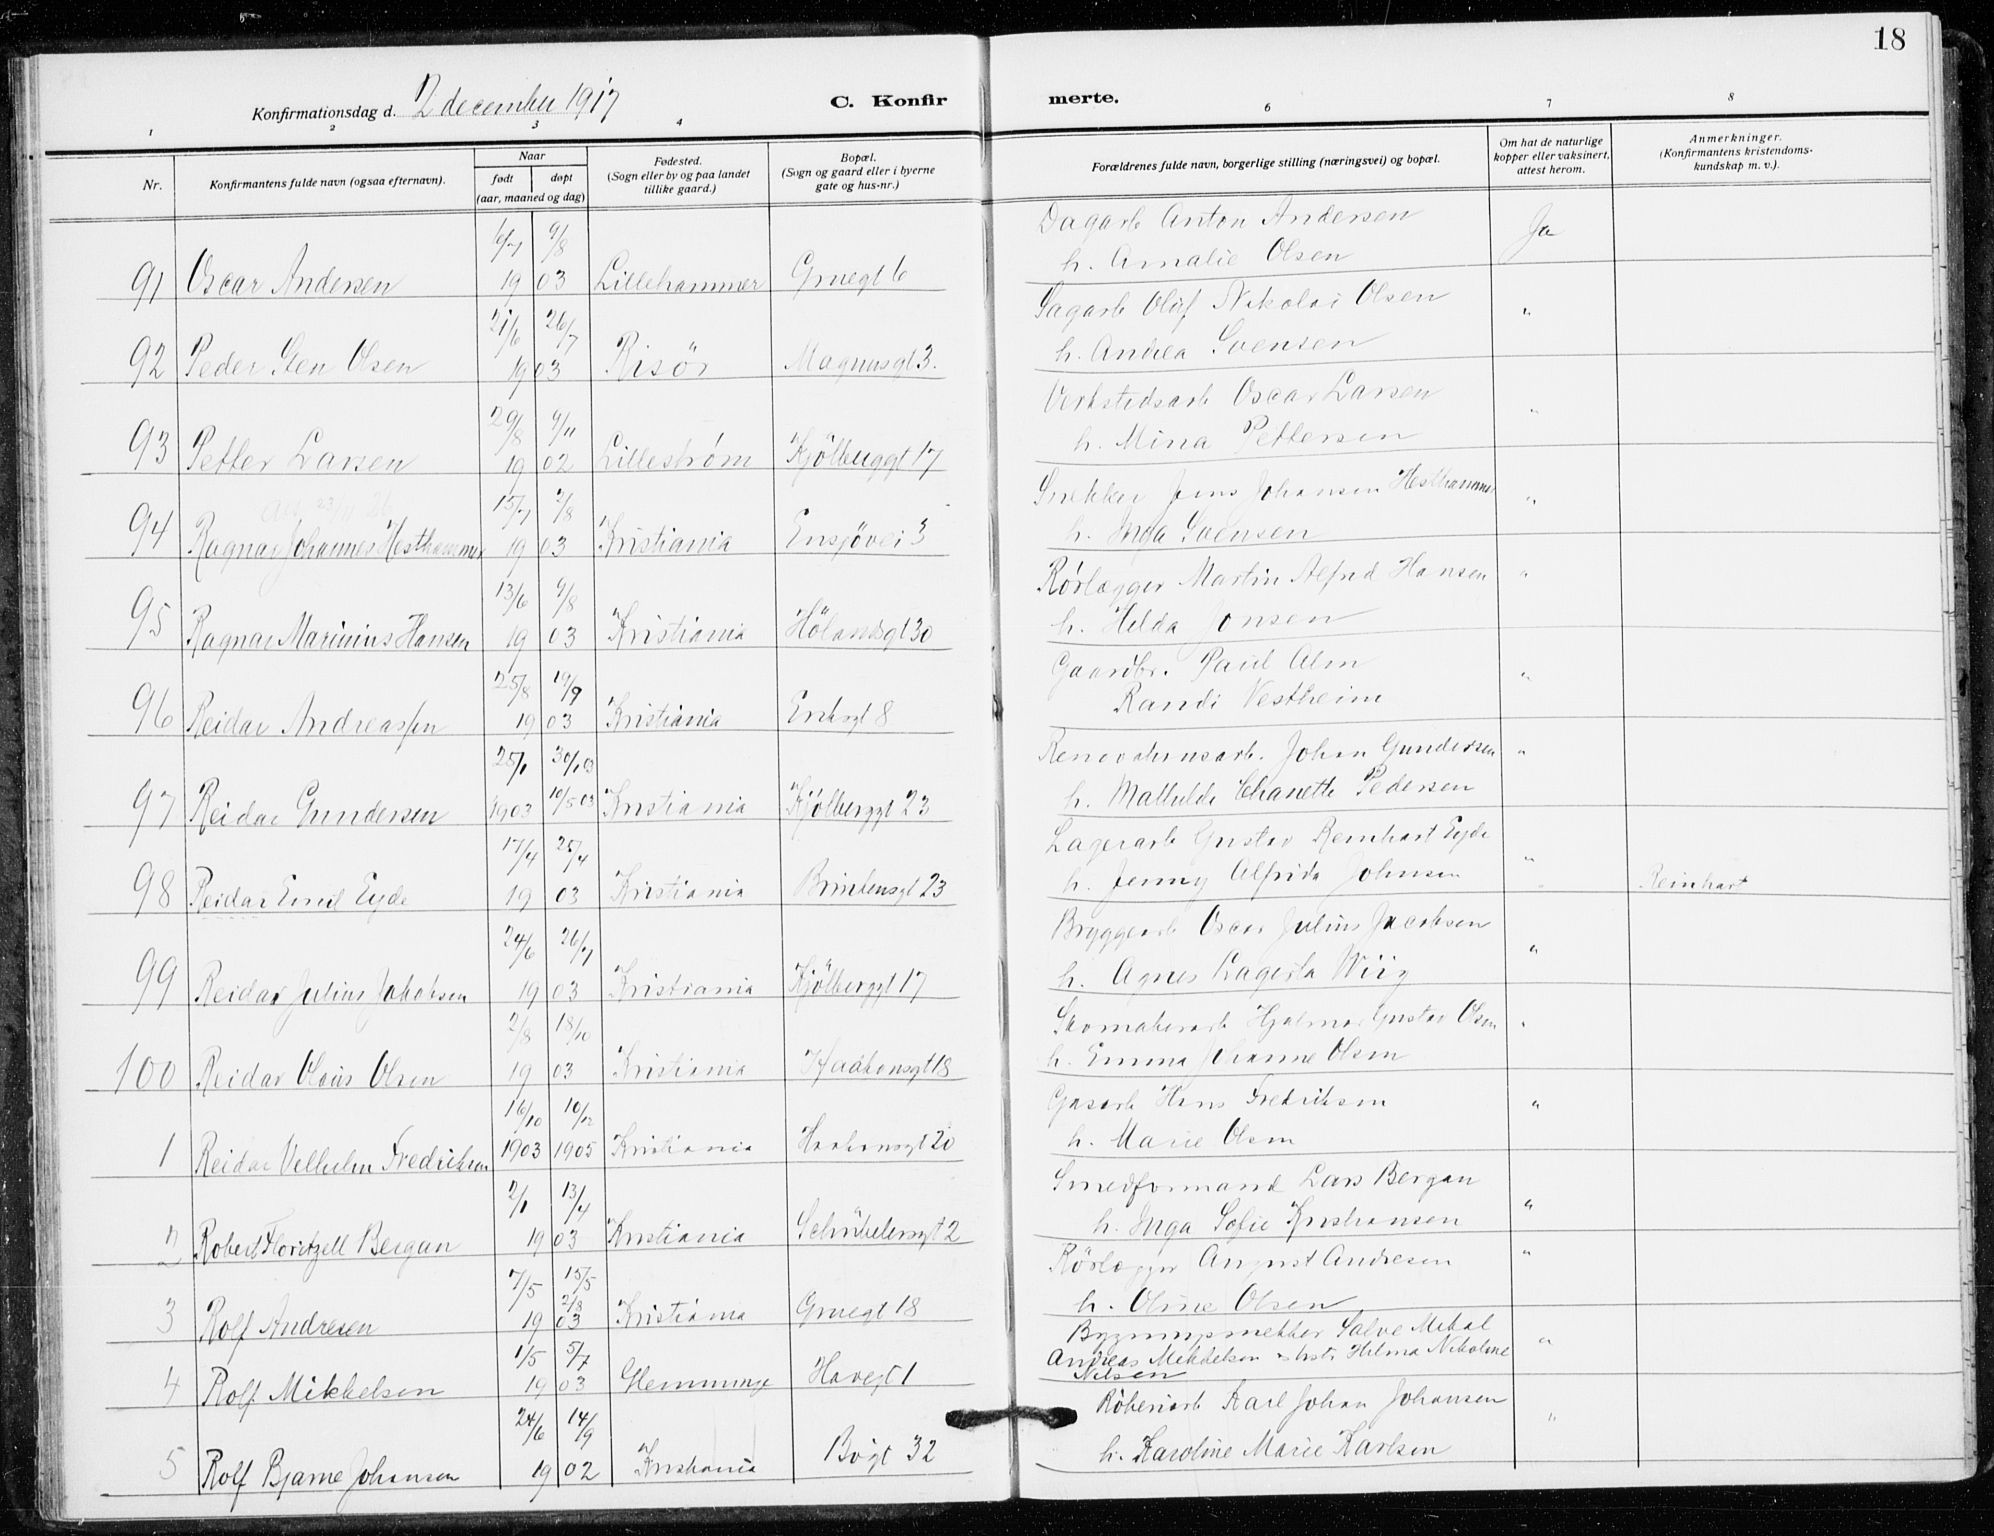 18
Konfirmationsdag d. 2 december 1917 C. Konfir merte.
1 2 3 4 6 7 8
Nr. Konfirmantens fulde navn (ogsaa efternavn). Naar født døpt (aar, maaned og dag) Fødested. (Sogn eller by og paa landet tillike gaard.) Bopæl. (Sogn og gaard eller i byerne gate og hus-nr.) Forældrenes fulde navn, borgerlige stilling (næringsvei) og bopæl. Om hat de naturlige kopper eller vaksinert, attest herom. Anmerkninger. (Konfirmantens kristendomskundskap m. v.).
6/7 9/8 Dagarb Anton Andersen Ja
91 Oscar Andersen 19 03 Lillehammer Grnegt 6 h. Amalie Olsen
21/6 26/7 Sagarb Olaf Nikolai Olsen "
92 Peder Sten Olsen 19 03 Risör Magnusgt 3. h. Andrea Svensen
29/8 9/11 Verkstedsarb Oscar Larsen "
93 Petter Larsen 19 02 Lillestrøm Kjölberggt 17 h. Mina Pettersen
23/11 26 15/7 9/8 Snekker Jens Johansen Hesthammer "
94 Ragnar Johannes Hesthammer 19 03 Kristiania Ensjövei 3 h. Inga Svensen
13/6 9/8 Rörlægger Martin Alfred Hansen "
95 Ragnar Marinius Hansen 19 03 Kristiania Hölandsgt 30 h. Hilda Jonsen
25/8 19/9 Gaardbr. Paul Alm "
96 Reidar Andreassen 19 03 Kristiania Eriksgt 8 Randi Vestheim
25/1 30/1 03 Renovationsarb. Johan Gundersen "
97 Reidar Gundersen 1903 10/5 03 Kristiania Kjölberggt 23 h. Mathilde Chanette Pedersen
17/4 25/4 Lagerarb Gustav Reinhart Eyde "
98 Reidar Emil Eyde 19 03 Kristiania Brinkensgt 23 h. Jenny Alfrida Johnsen Reinhart
24/6 26/7 Bryggearb Oscar Julius Jacobsen "
99 Reidar Julius Jakobsen 19 03 Kristiania Kjölberggt 17 h. Agnes Lagerta Wiig
2/8 18/10 Skomakerarb Hjalmar Gustav Olsen "
100 Reidar Olaus Olsen 19 03 Kristiania Haakonsgt 18 h. Emma Johanne Olsen
16/10 10/12 Gasarb Hans Fredriksen "
1 Reidar Vilhelm Fredriksen 1903 1905 Kristiania Haakonsgt 20 h. Marie Olsen
2/1 13/4 Smedformand Lars Bergan "
2 Robert Floritzell Bergan 19 03 Kristiania Schübelersgt 2 h. Inga Sofie Kristiansen
7/5 15/5 2/8 Rörlægger August Andresen "
3 Rolf Andresen 19 03 Kristiania Grnegt 18 h. Oline Olsen
1/5 5/7 Bygningsnekker Salve Mikal "
Andreas Mikkelsen hst. Hilma Nikoline
4 Rolf Mikkelsen 19 03 Glemminge Havegt 1 Nilsen
24/6 14/9 Karl Johan Johansen "
5 Rolf Bjarne Johansen 19 02 Kristiania Bögt 32 h. Karoline Marie Karlsen